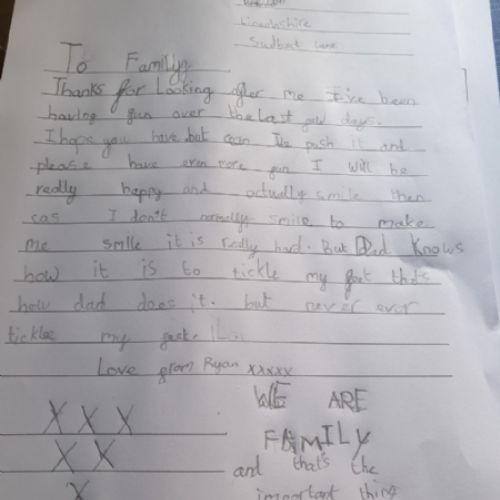 Lincolnshire
Sudbrook Lane
To Family
Thanks for Looking after me I've been
having fun over the last few days.
I hope you have but can I push it and
please have even more fun I will be
really happy and actually smile then
cas I don't normally smile to make
me smile it is really hard. But Dad Knows
how it is to tickle my feet that's
how dad does it. but never ever
tickles my
Love from Ryan xxxxx
X X X
X X
X
WE ARE
FAMILY
and that's the
important thing